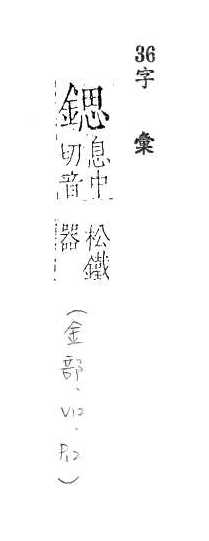 36字 彙
鍶息中切音松鐵器(金部、V12.P.12)